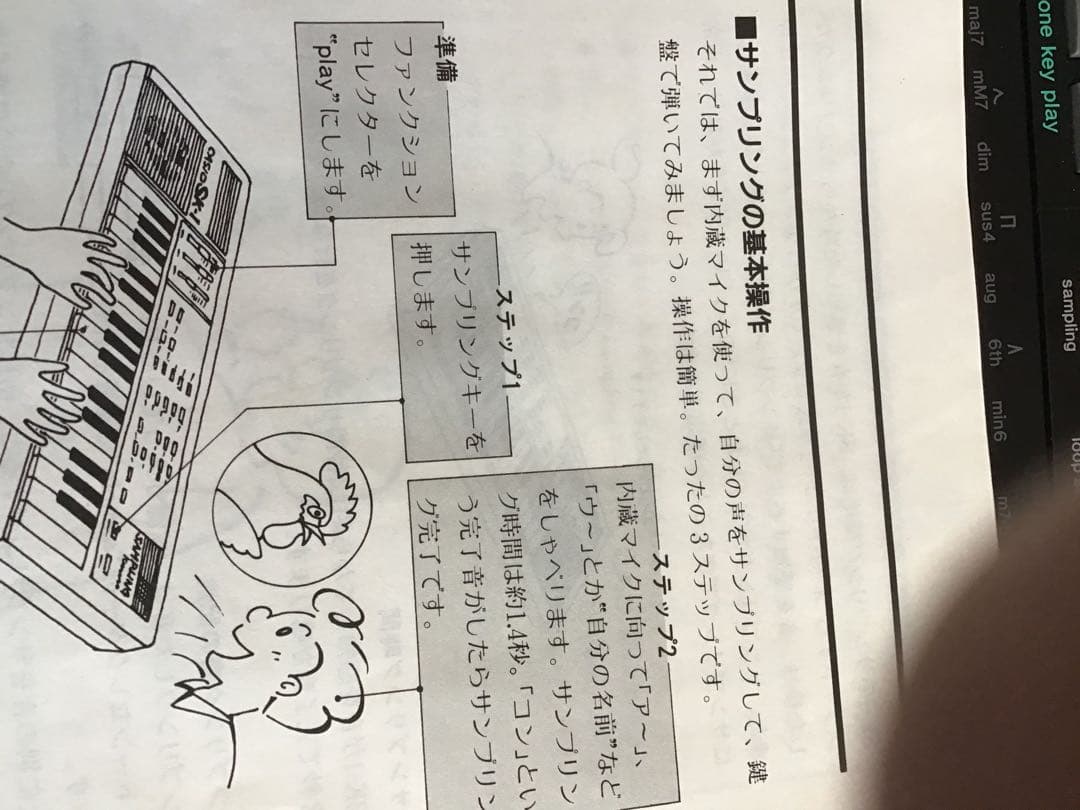 ■サンプリングの基本操作
それでは、まず内蔵マイクを使って、自分の声をサンプリングして、鍵
盤で弾いてみましょう。操作は簡単。たったの3ステップです。
準備
ファンクション
セレクターを
“play”にします。
ステップ1
サンプリングキーを
押します。
ステップ2
内蔵マイクに向って「ア〜」、
「ウ〜」とか“自分の名前”など
をしゃべります。サンプリン
グ時間は約1.4秒。「コン」とい
う完了音がしたらサンプリン
グ完了です。
CASIO SK-1
SAMPLING
one key play
maj7
mM7
dim
sus4
aug
6th
min6
m7
sampling
loop